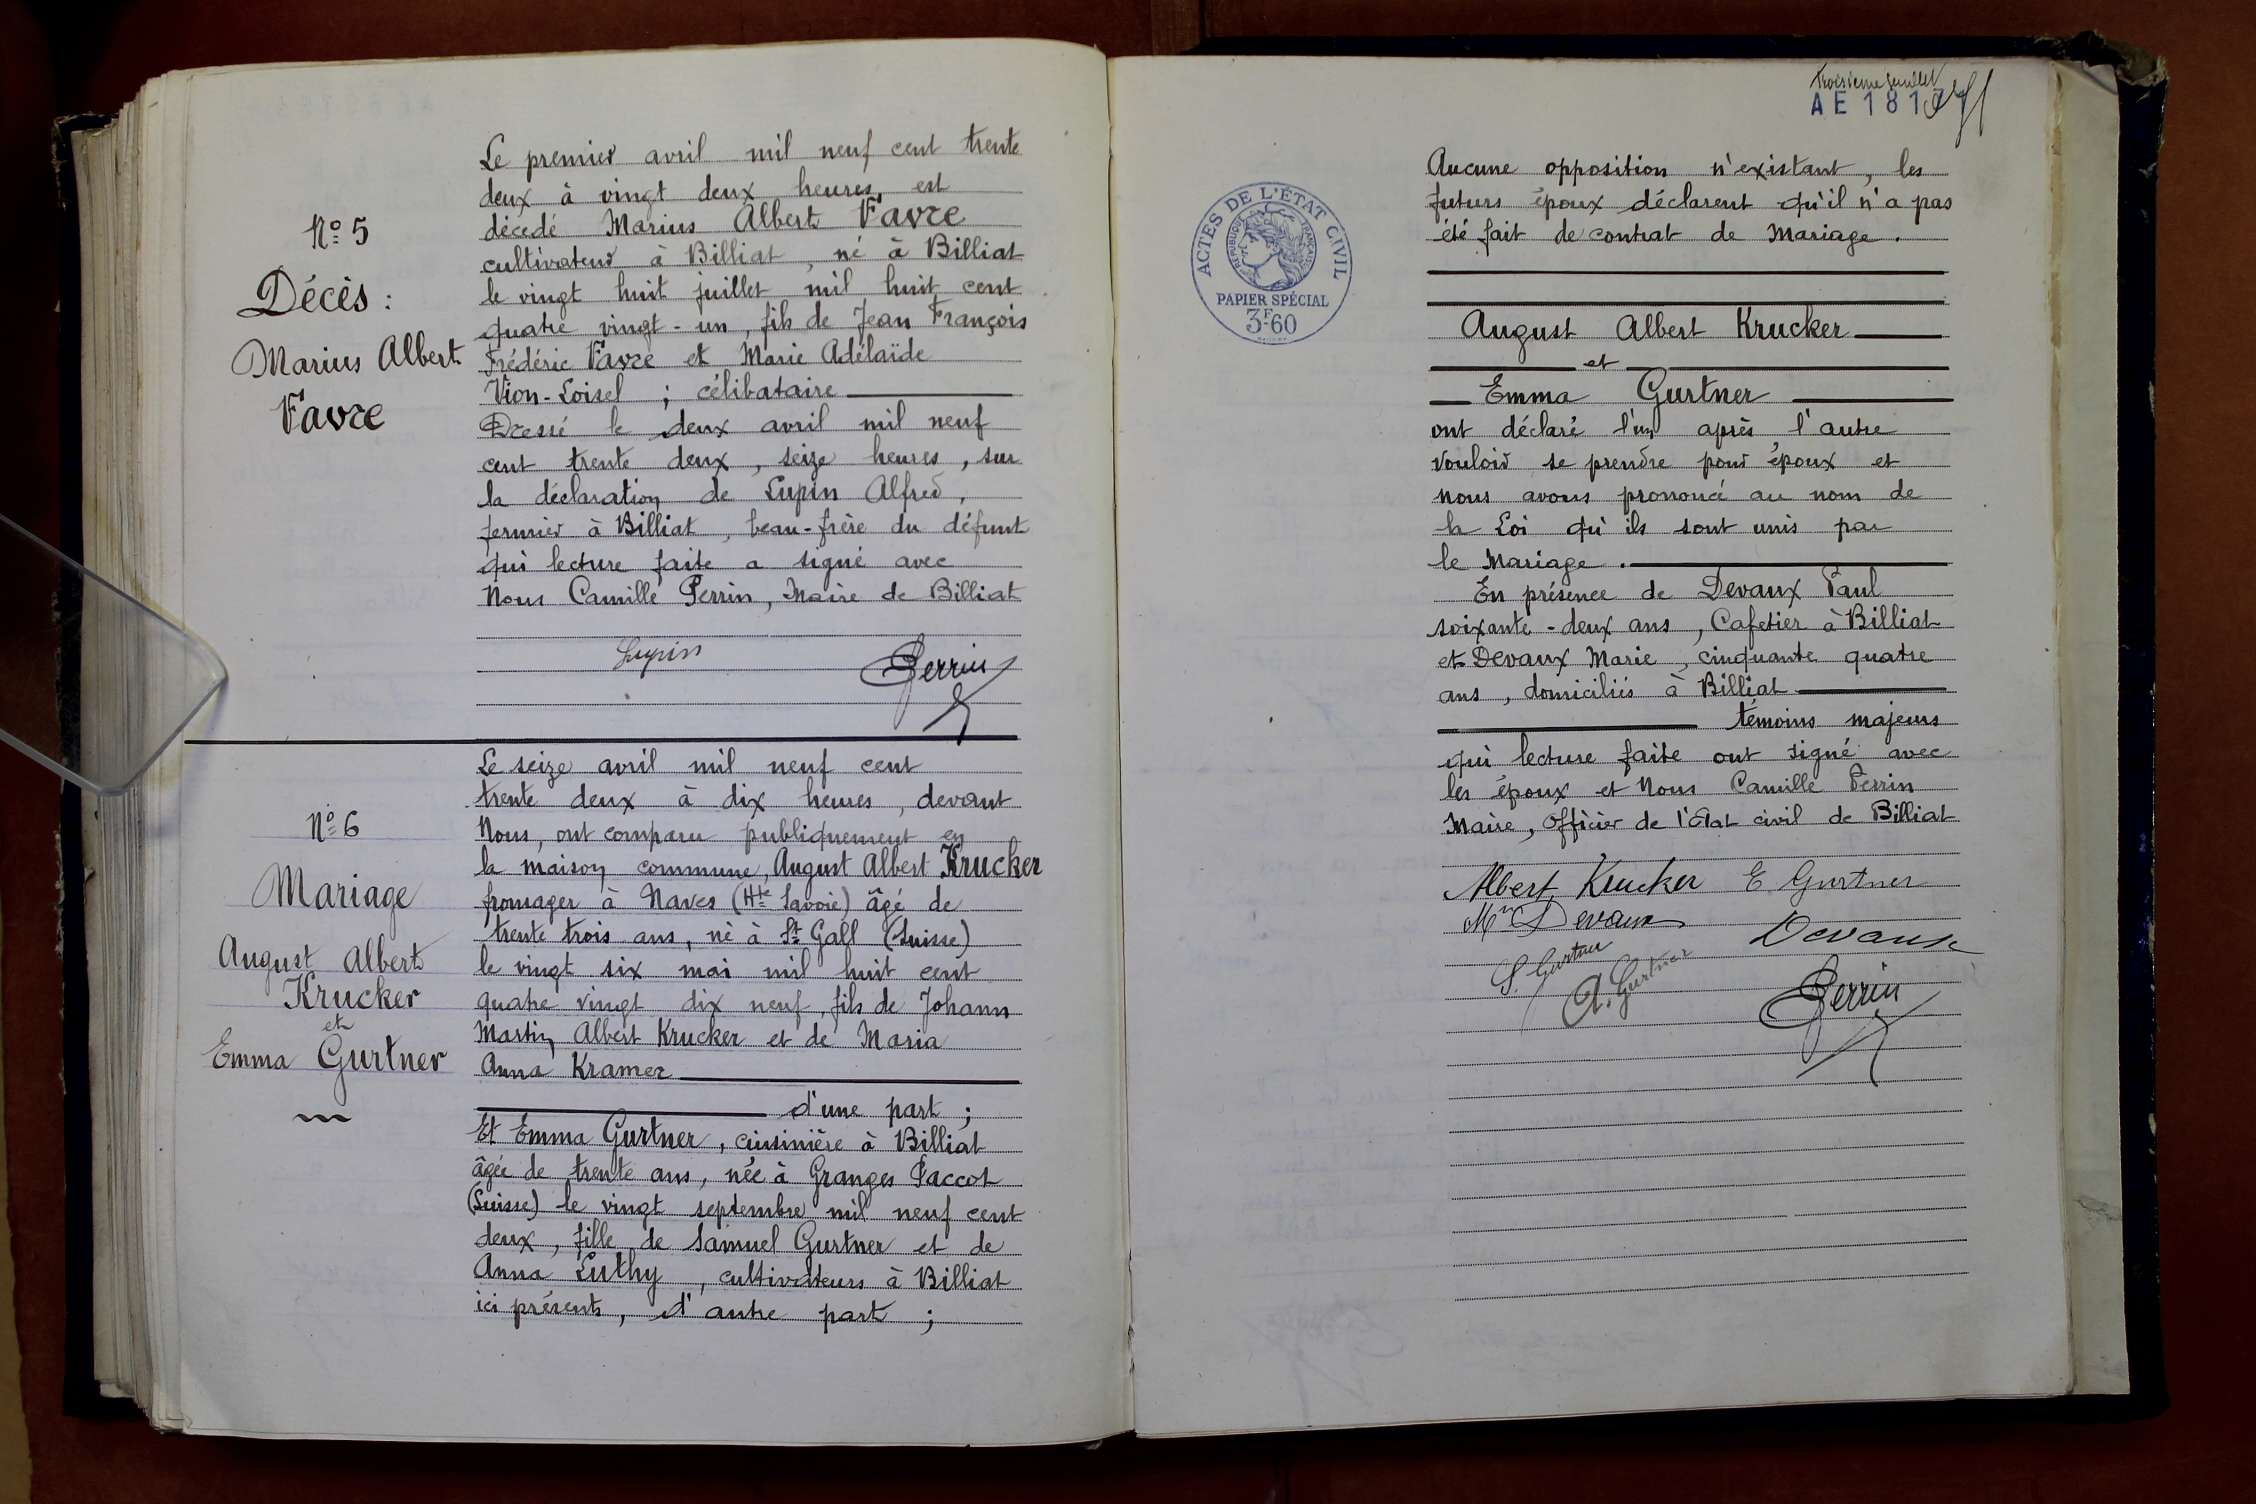 N° 5
Décès :
Marius Albert
Favre
Le premier avril mil neuf cent trente
deux à vingt deux heures, est
décedé Marius Albert Favre
cultivateur à Billiat, né à Billiat
le vingt huit juillet mil huit cent
quatre vingt-un, fils de Jean François
Frédéric Favre et Marie Adélaïde
Vion-Loisel ; célibataire
Dressé le deux avril mil neuf
cent trente deux, seize heures, sur
la déclaration de Lupin Alfred,
fermier à Billiat, beau-frère du défunt
qui lecture faite a signé avec
Nous Camille Perrin, Maire de Billiat
Lupin
Perrin
N° 6
Mariage
August Albert
Krucker
et
Emma Gurtner
Le seize avril mil neuf cent
trente deux à dix heures, devant
Nous, ont comparu publiquement en
la maison commune, August Albert Krucker
fromager à Naves (Hte Savoie) âgé de
trente trois ans, né à St Gall (Suisse)
le vingt six mai mil huit cent
quatre vingt dix neuf, fils de Johann
Martin Albert Krucker et de Maria
Anna Kramer
d'une part ;
Et Emma Gurtner, cuisinière à Billiat
âgée de trente ans, née à Granges Paccot
(Suisse) le vingt septembre mil neuf cent
deux, fille de Samuel Gurtner et de
Anna Luthy, cultivateurs à Billiat
ici présents, d'autre part ;
Troisième feuillet
AE 181
ACTES DE L'ÉTAT CIVIL
RÉPUBLIQUE FRANÇAISE
PAPIER SPÉCIAL
3F60
Aucune opposition n'existant, les
futurs époux déclarent qu'il n'a pas
été fait de contrat de Mariage.
August Albert Krucker
et
Emma Gurtner
ont déclaré l'un après l'autre
vouloir se prendre pour époux et
nous avons prononcé au nom de
la Loi qu'ils sont unis par
le Mariage.
En présence de Devaux Paul
soixante-deux ans, Cafetier à Billiat
et Devaux Marie, cinquante quatre
ans, domiciliés à Billiat
témoins majeurs
qui lecture faite ont signé avec
les époux et Nous Camille Perrin
Maire, officier de l'état civil de Billiat
Albert Krucker E Gurtner
Devaux
Devaux
S. Gurtner
A. Gurtner
Perrin